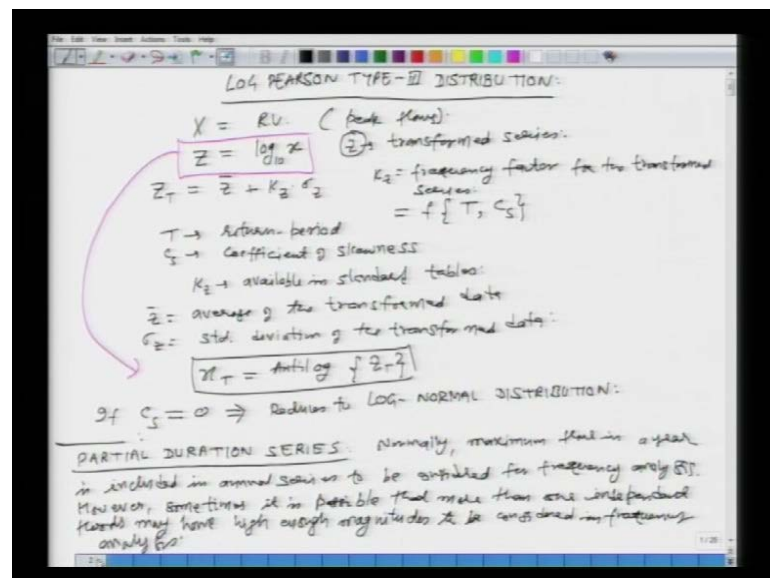 File Edit View Insert Actions Tools Help
LOG PEARSON TYPE-III DISTRIBUTION:
X = RV. (peak flow).
Z = log₁₀ x
Z → transformed series.
K_z = frequency factor for the transformed series.
Z_T = z̄ + K_z. σ_z
= f{T, C_s}
T → return-period
C_s → coefficient of skewness
K_z → available in standard tables:
z̄ = average of the transformed data
σ_z = std. deviation of the transformed data:
x_T = Antilog {Z_T}
If C_s = 0 ⇒ Reduces to LOG-NORMAL DISTRIBUTION:
PARTIAL DURATION SERIES: Normally, maximum flood in a year
is included in annual series to be for frequency analysis.
However, sometimes it is possible that more than one independent
floods may have high enough magnitudes to be considered in frequency
analysis.
1/25